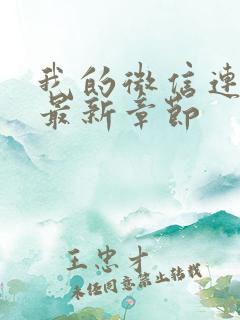 我的微信连
最新章节
王忠才
未经同意禁止转载